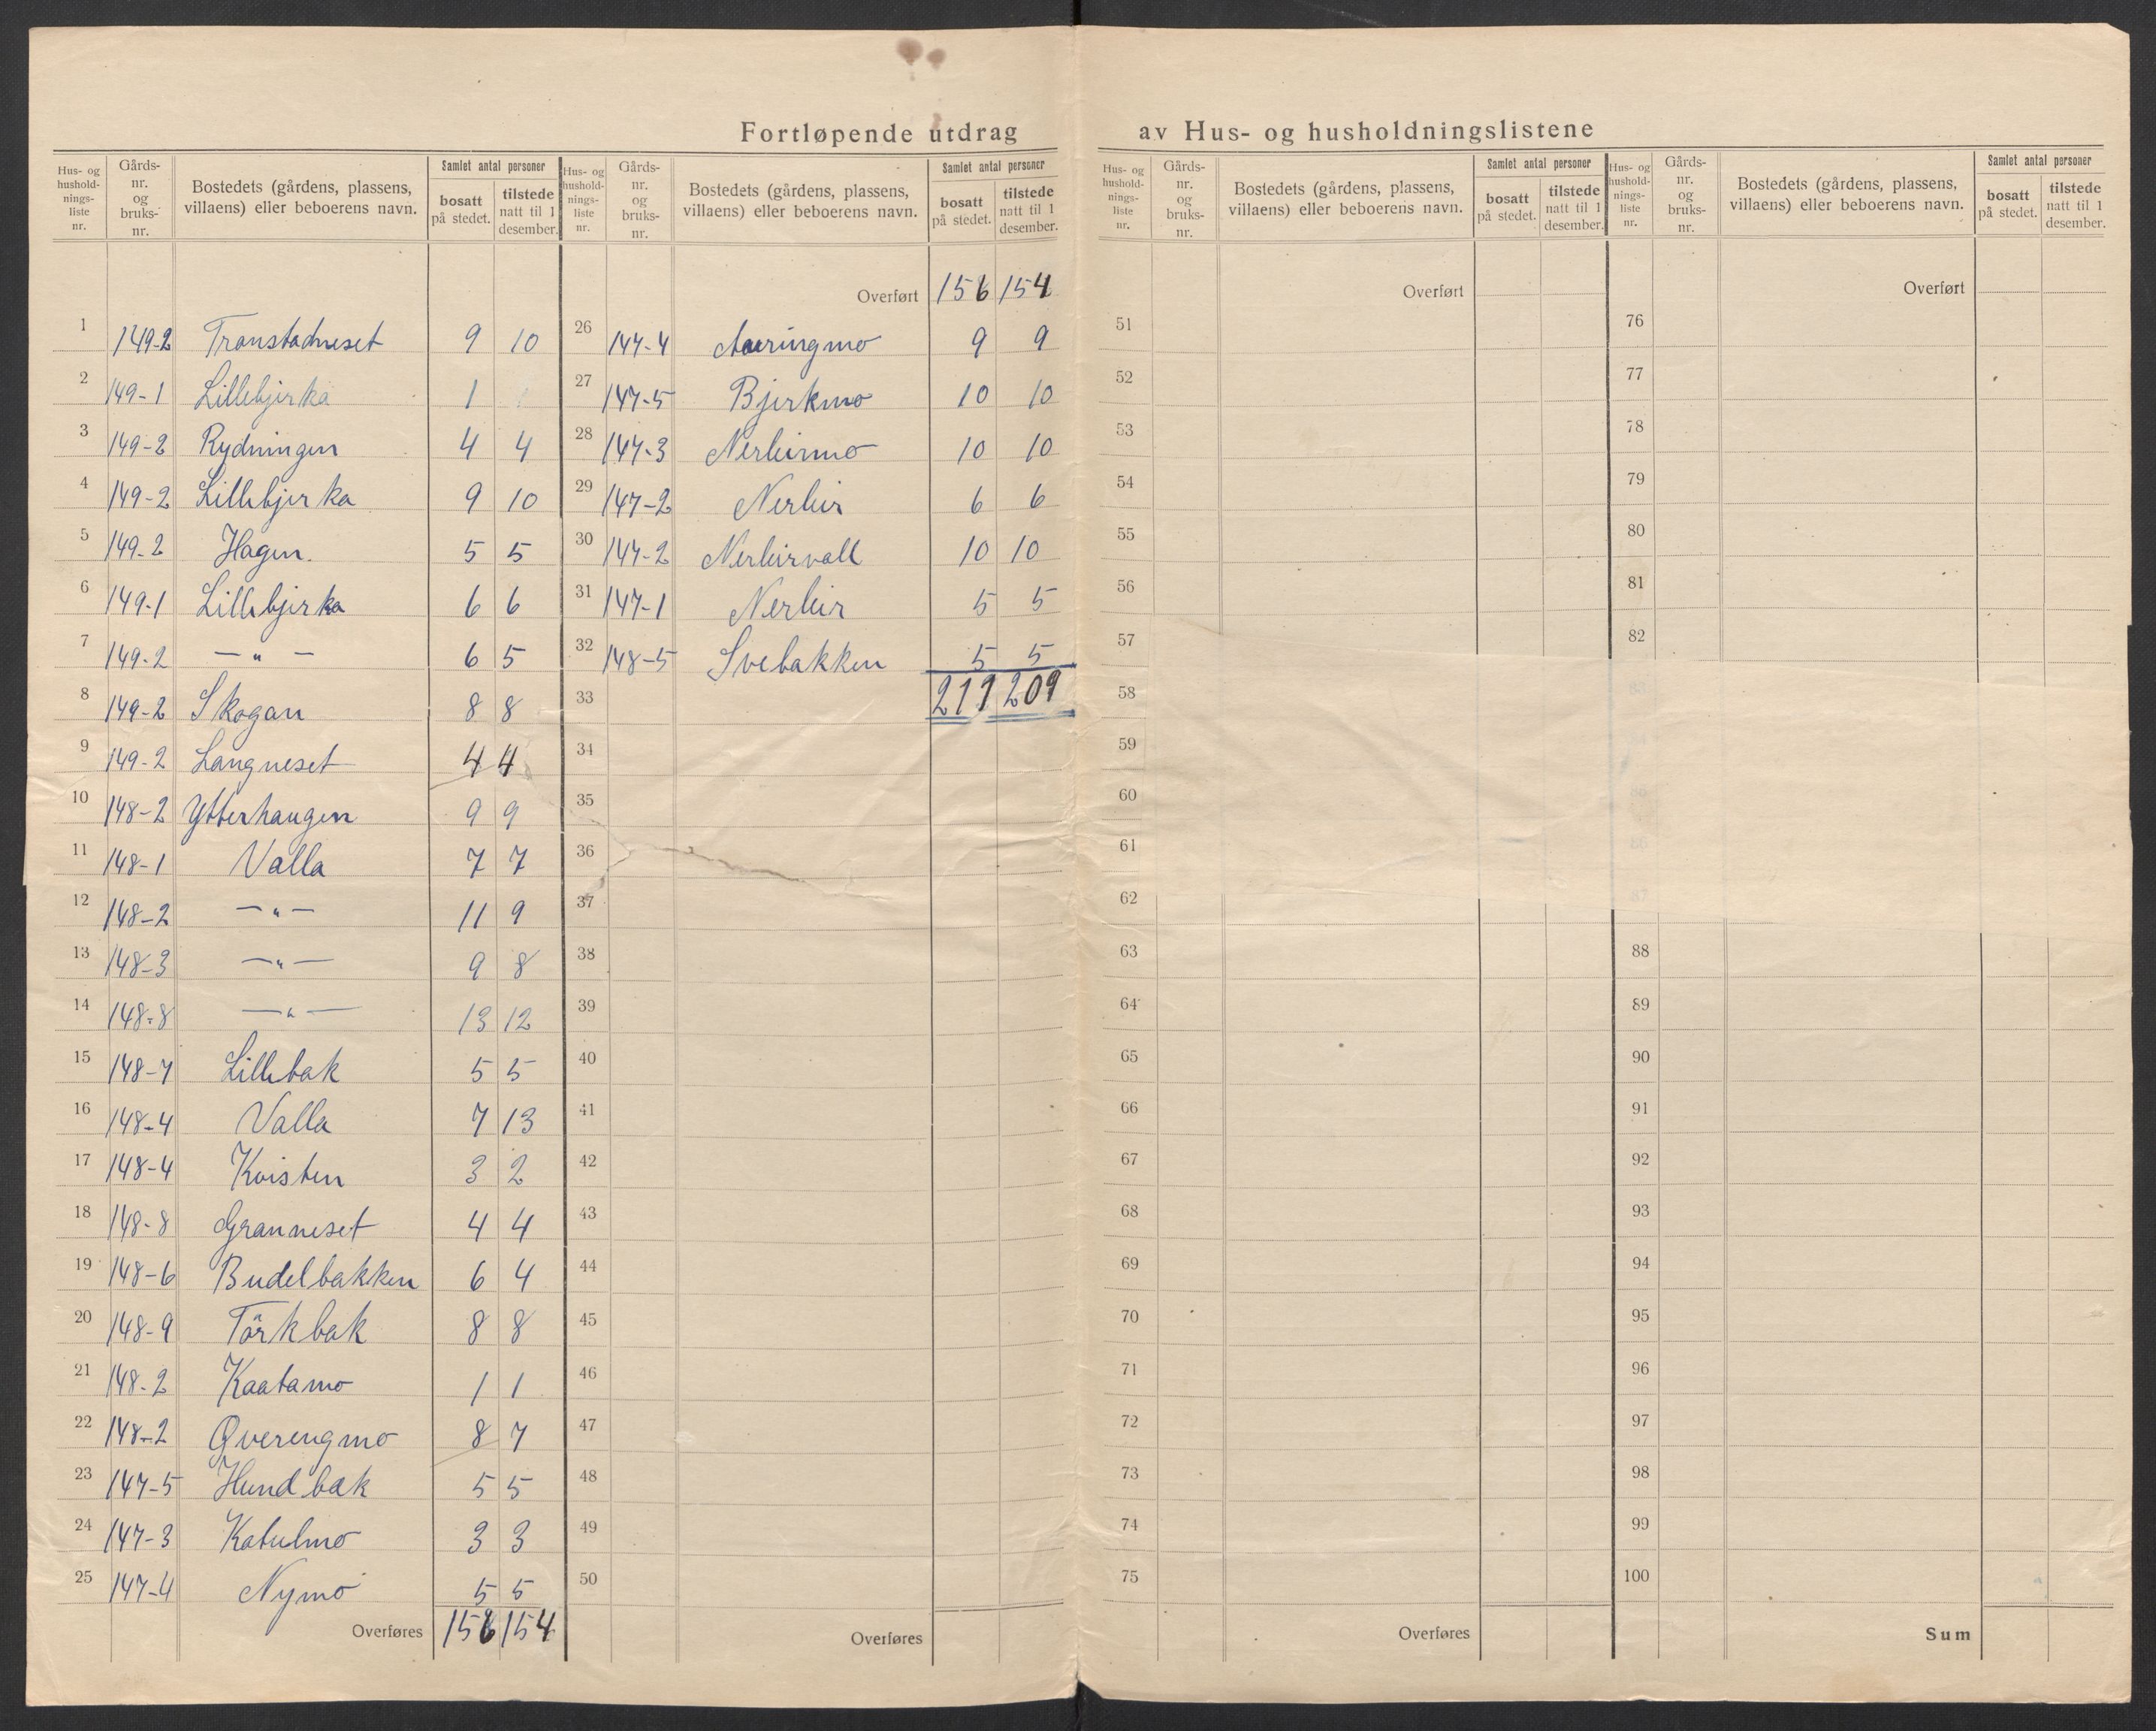 Fortløpende utdrag av Hus- og husholdningslistene
Hus- og hushold-nings-liste nr. Gårds-nr. og bruks-nr. Bostedets (gårdens, plassens, villaens) eller beboerens navn. Samlet antal personer bosatt på stedet. tilstede natt til 1 desember.
1 149-2 Transtadneset 9 10
2 149-1 Lillebjerka 1
3 149-2 Rydningen 4 4
4 149-2 Lillebjerka 9 10
5 149-2 Hagen. 5 5
6 149-1 Lillebjerka 6 6
7 149-2 — " — 6 5
8 149-2 Skogan 8 8
9 149-2 Langneset 4 4
10 148-2 Ytterhaugen 9 9
11 148-1 Valla 7 7
12 148-2 — " — 11 9
13 148-3 — " — 9 8
14 148-8 — " — 13 12
15 148-7 Lillebak 5 5
16 148-4 Valla 7 13
17 148-4 Kvisten 3 2
18 148-8 Granneset 4 4
19 148-6 Budelbakken 6 4
20 148-9 Törkbak 8 8
21 148-2 Kaatamo 1 1
22 148-2 Øverengmo 8 7
23 147-5 Hundbak 5 5
24 147-3 Katulmo 3 3
25 147-4 Nymo 5 5
Overføres 156 154
Hus- og hushold-nings-liste nr. Gårds-nr. og bruks-nr. Bostedets (gårdens, plassens, villaens) eller beboerens navn. Samlet antal personer bosatt på stedet. tilstede natt til 1 desember.
Overført 156 154
26 147-4 9 9
27 147-5 Bjerkmo 10 10
28 147-3 Nerleirmo 10 10
29 147-2 Nerleir 6 6
30 147-2 Nerleirvall 10 10
31 147-1 Nerleir 5 5
32 148-5 Svebakken 5 5
33 211 209
34
35
36
37
38
39
40
41
42
43
44
45
46
47
48
49
50
Overføres
Hus- og hushold-nings-liste nr. Gårds-nr. og bruks-nr. Bostedets (gårdens, plassens, villaens) eller beboerens navn. Samlet antal personer bosatt på stedet. tilstede natt til 1 desember.
Overført
51
52
53
54
55
56
57
58
59
60
61
62
63
64
65
66
67
68
69
70
71
72
73
74
75
Overføres
Hus- og hushold-nings-liste nr. Gårds-nr. og bruks-nr. Bostedets (gårdens, plassens, villaens) eller beboerens navn. Samlet antal personer bosatt på stedet. tilstede natt til 1 desember.
Overført
76
77
78
79
80
81
82
83
86
87
88
89
90
91
92
93
94
95
96
97
98
99
100
Sum